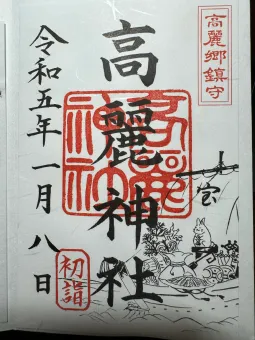 高麗郷鎮守
高麗神社
高麗神社
令和五年一月八日
初詣
宝